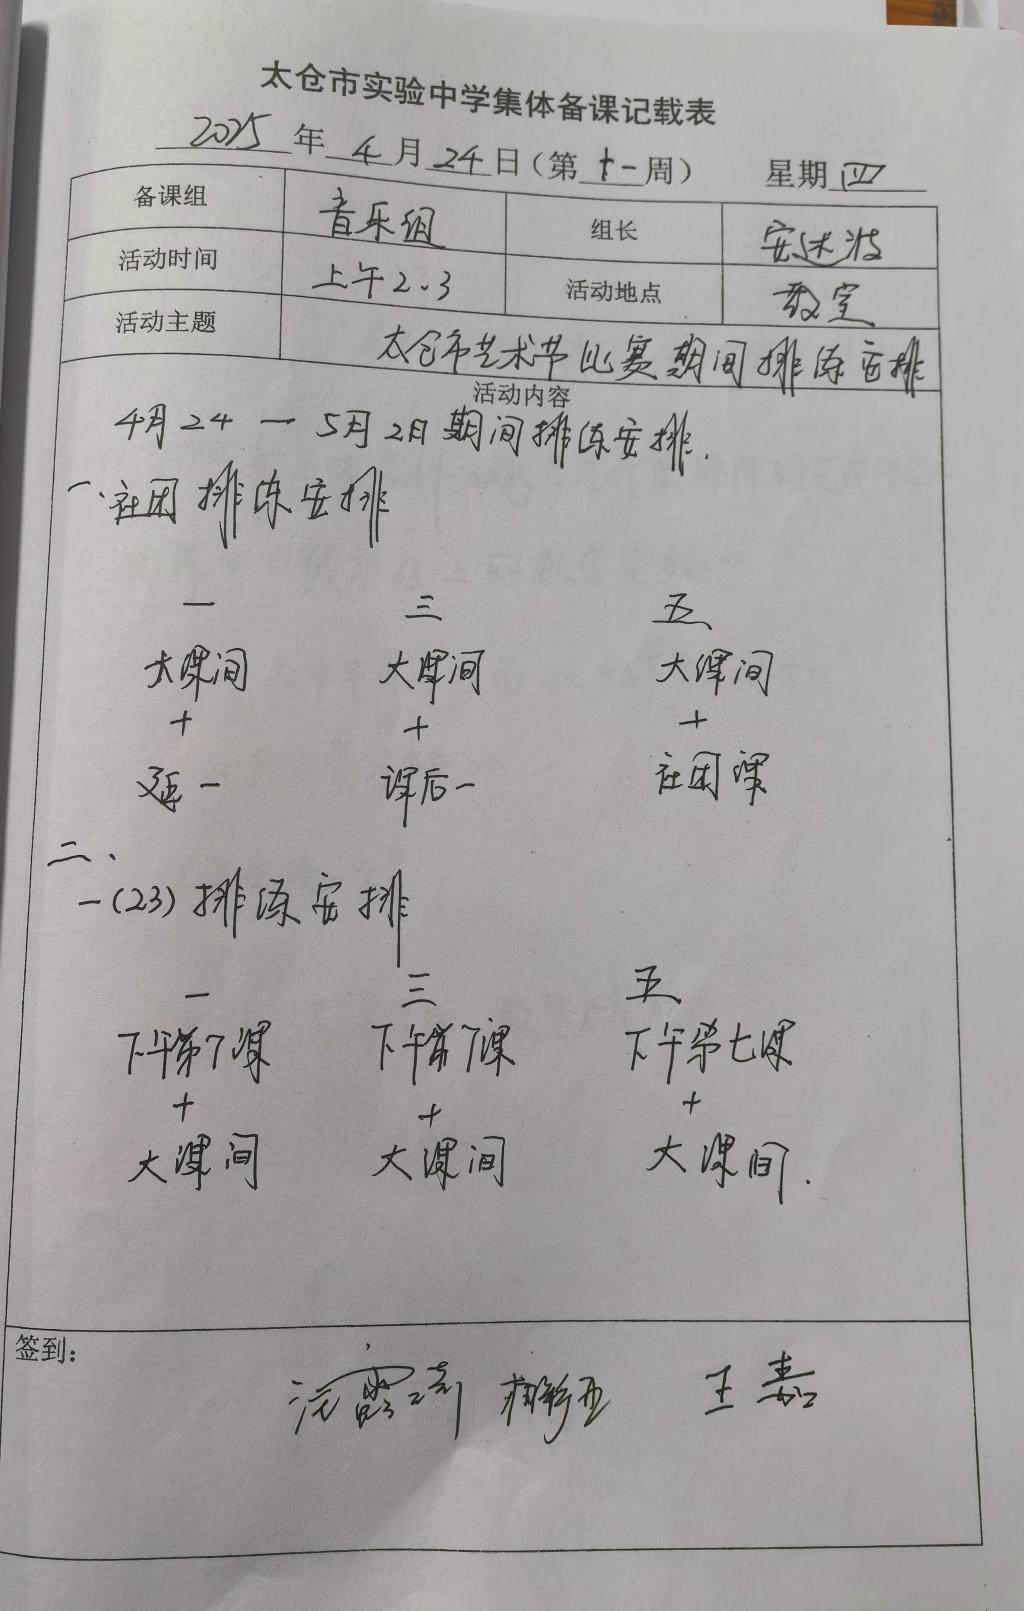 太仓市实验中学集体备课记载表
2025 年 4 月 24 日（第 十一 周） 星期 四
备课组 音乐组 组长
活动时间 上午2、3 活动地点 教室
活动主题 太仓市艺术节比赛期间排练安排
活动内容
4月24 — 5月2日期间排练安排.
一、社团排练安排
一 三 五
大课间 大课间 大课间
+ + +
延一 课后一 社团课
二、
一(23)排练安排
一 三 五
下午第7课 下午第7课 下午第七课
+ + +
大课间 大课间 大课间.
签到：
王嘉